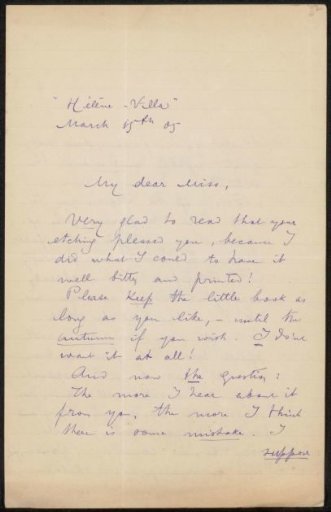 "Hélène-Villa"
March 15th 05
My dear Miss,
Very glad to read that your
etching pleased you, because I
did what I could to have it
well bitty and printed!
Please keep the little book as
long as you like, - until the
autumn if you wish. I don't
want it at all!
And now the question:
The more I hear about it
from you, the more I think
there is some mistake. I
suppose